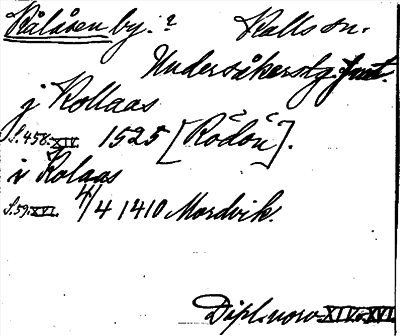 Kålåsen by. ? Kalls sn.
Undersåkers tg. Jmt.
j Kollaas
S. 458. XIV. 1525 [Rödön].
i Kolaas
S. 59. XVI. 4/4 1410 Mordvik.
Dipl. norv. XIV o. XVI.